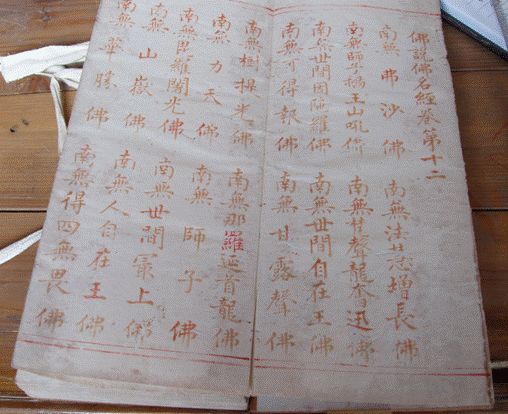 佛說佛名經卷第十二
南無弗沙佛 南無法增長佛
南無師子王山吼佛 南無聲龍奮迅佛
南無世間因陀羅佛 南無世間自在王佛
南無可得報佛 南無甘露聲佛
南無樹提光佛 南無那羅延首龍佛
南無力天佛 南無師子佛
南無毘羅闍光佛 南無世間最上佛
南無山嶽佛 南無人自在王佛
南無華勝佛 南無得四無畏佛